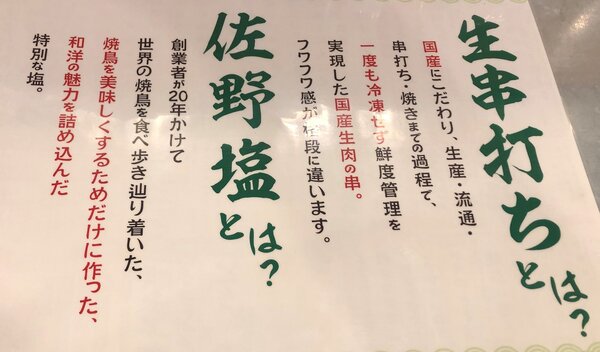 生串打ちとは?
国産にこだわり、生産・流通・
串打ち・焼きまでの過程で、
一度も冷凍せず鮮度管理を
実現した国産生肉の串。
フワフワ感が格段に違います。
佐野塩とは?
創業者が20年かけて
世界の焼鳥を食べ歩き辿り着いた、
焼鳥を美味しくするためだけに作った、
和洋の魅力を詰め込んだ
特別な塩。